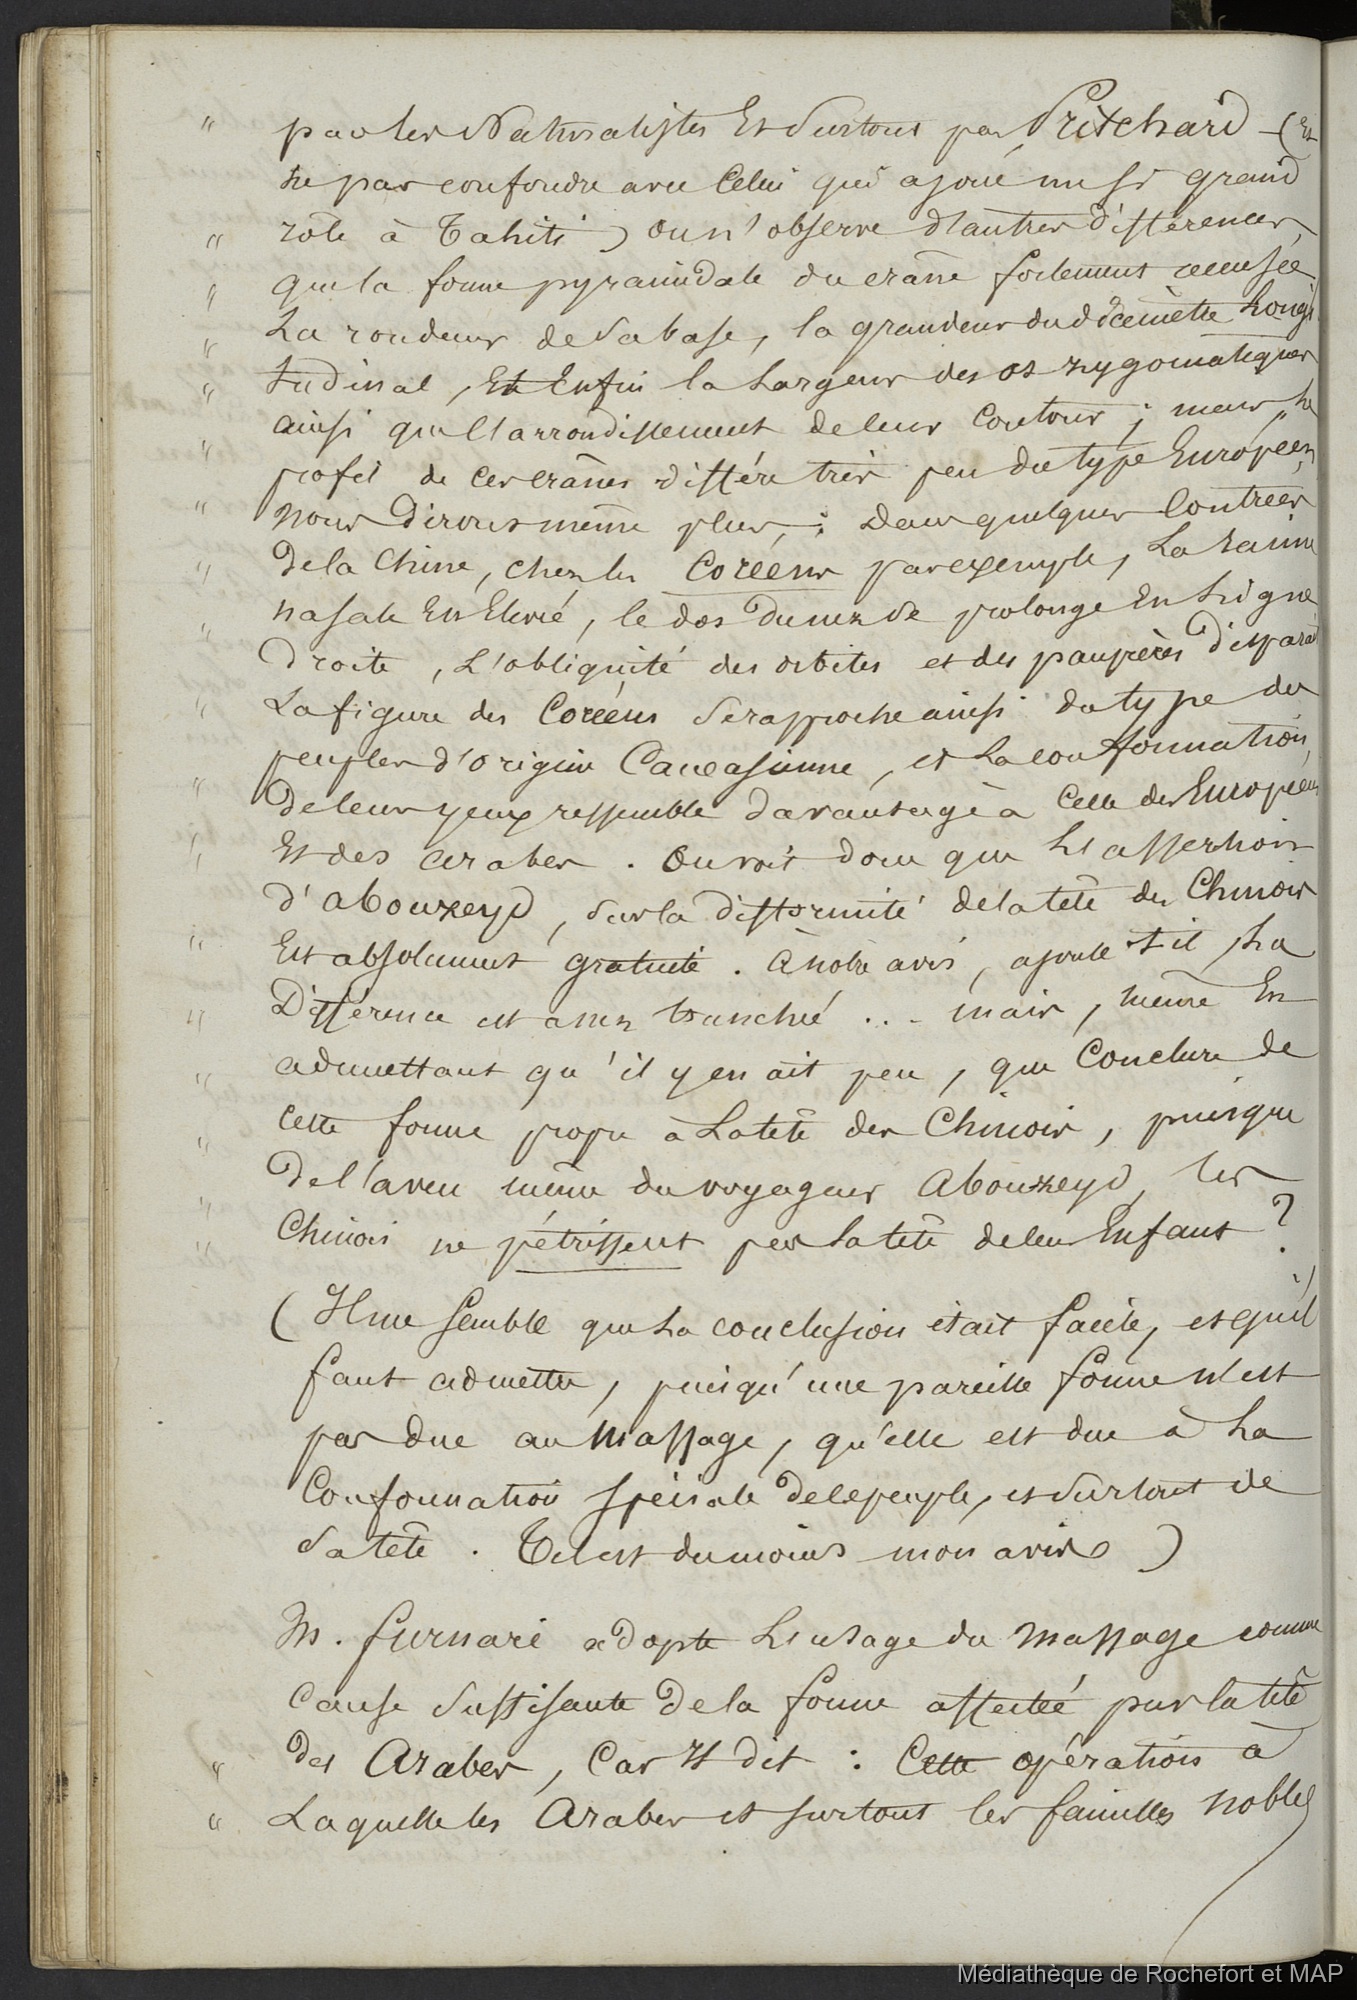 " par les Naturalistes Et Surtout par Pritchard - (Et
ne pas confondre avec Celui qui a joué un si grand
" rôle à Tahiti) on n'observe d'autres différences,
" que la forme pyramidale du crâne fortement accusée
" La rondeur de Sa base, la grandeur du diamètre Longi
" tudinal, Et Enfin la Largeur des os zygomatiques
" ainsi que l'arrondissement de leur Contour ; mais, le
" profil de Ces crânes diffère très peu du type Européen,
" nous dirons même plus, : Dans quelques Contrées
" De la Chine, chez les Coréens par exemple, La racine
" nasale Est Elevé, le dos du nez se prolonge En Ligne
" Droite, L'obliquité des orbites et des paupières disparait
" La figure des Coréens Se rapproche ainsi du type des
" peuples d'origine Caucasienne, et La conformation,
" De leurs yeux ressemble davantage à Celle des Européens
" Et des arabes. On voit donc que L'assertion
d'abouzeyd, sur la difformité de la tête des Chinois
" Est absolument gratuite. à notre avis, ajoute t-il, La
" Différence est assez tranchée ... mais, même En
" admettant qu'il y en ait peu, que Conclure de
" cette forme propre à La tête des Chinois, puisque
" De l'aveu même du voyageur Abouzeyd, les
" Chinois ne pétrissent pas la tête de leurs Enfants ?
( Il me semble que La conclusion était facile, et qu'il
faut admettre, puisqu'une pareille forme n'est
pas due au Massage, qu'elle est due à La
Conformation spéciale de ce peuple, et Surtout de
Sa tête. Tel est du moins mon avis )
M. furnari adopte L'usage du Massage comme
Cause Suffisante De la forme affectée par la tête
" des Arabes, Car Il dit : Cette opération à
" Laquelle les Arabes et surtout les familles nobles
Médiathèque de Rochefort et MAP